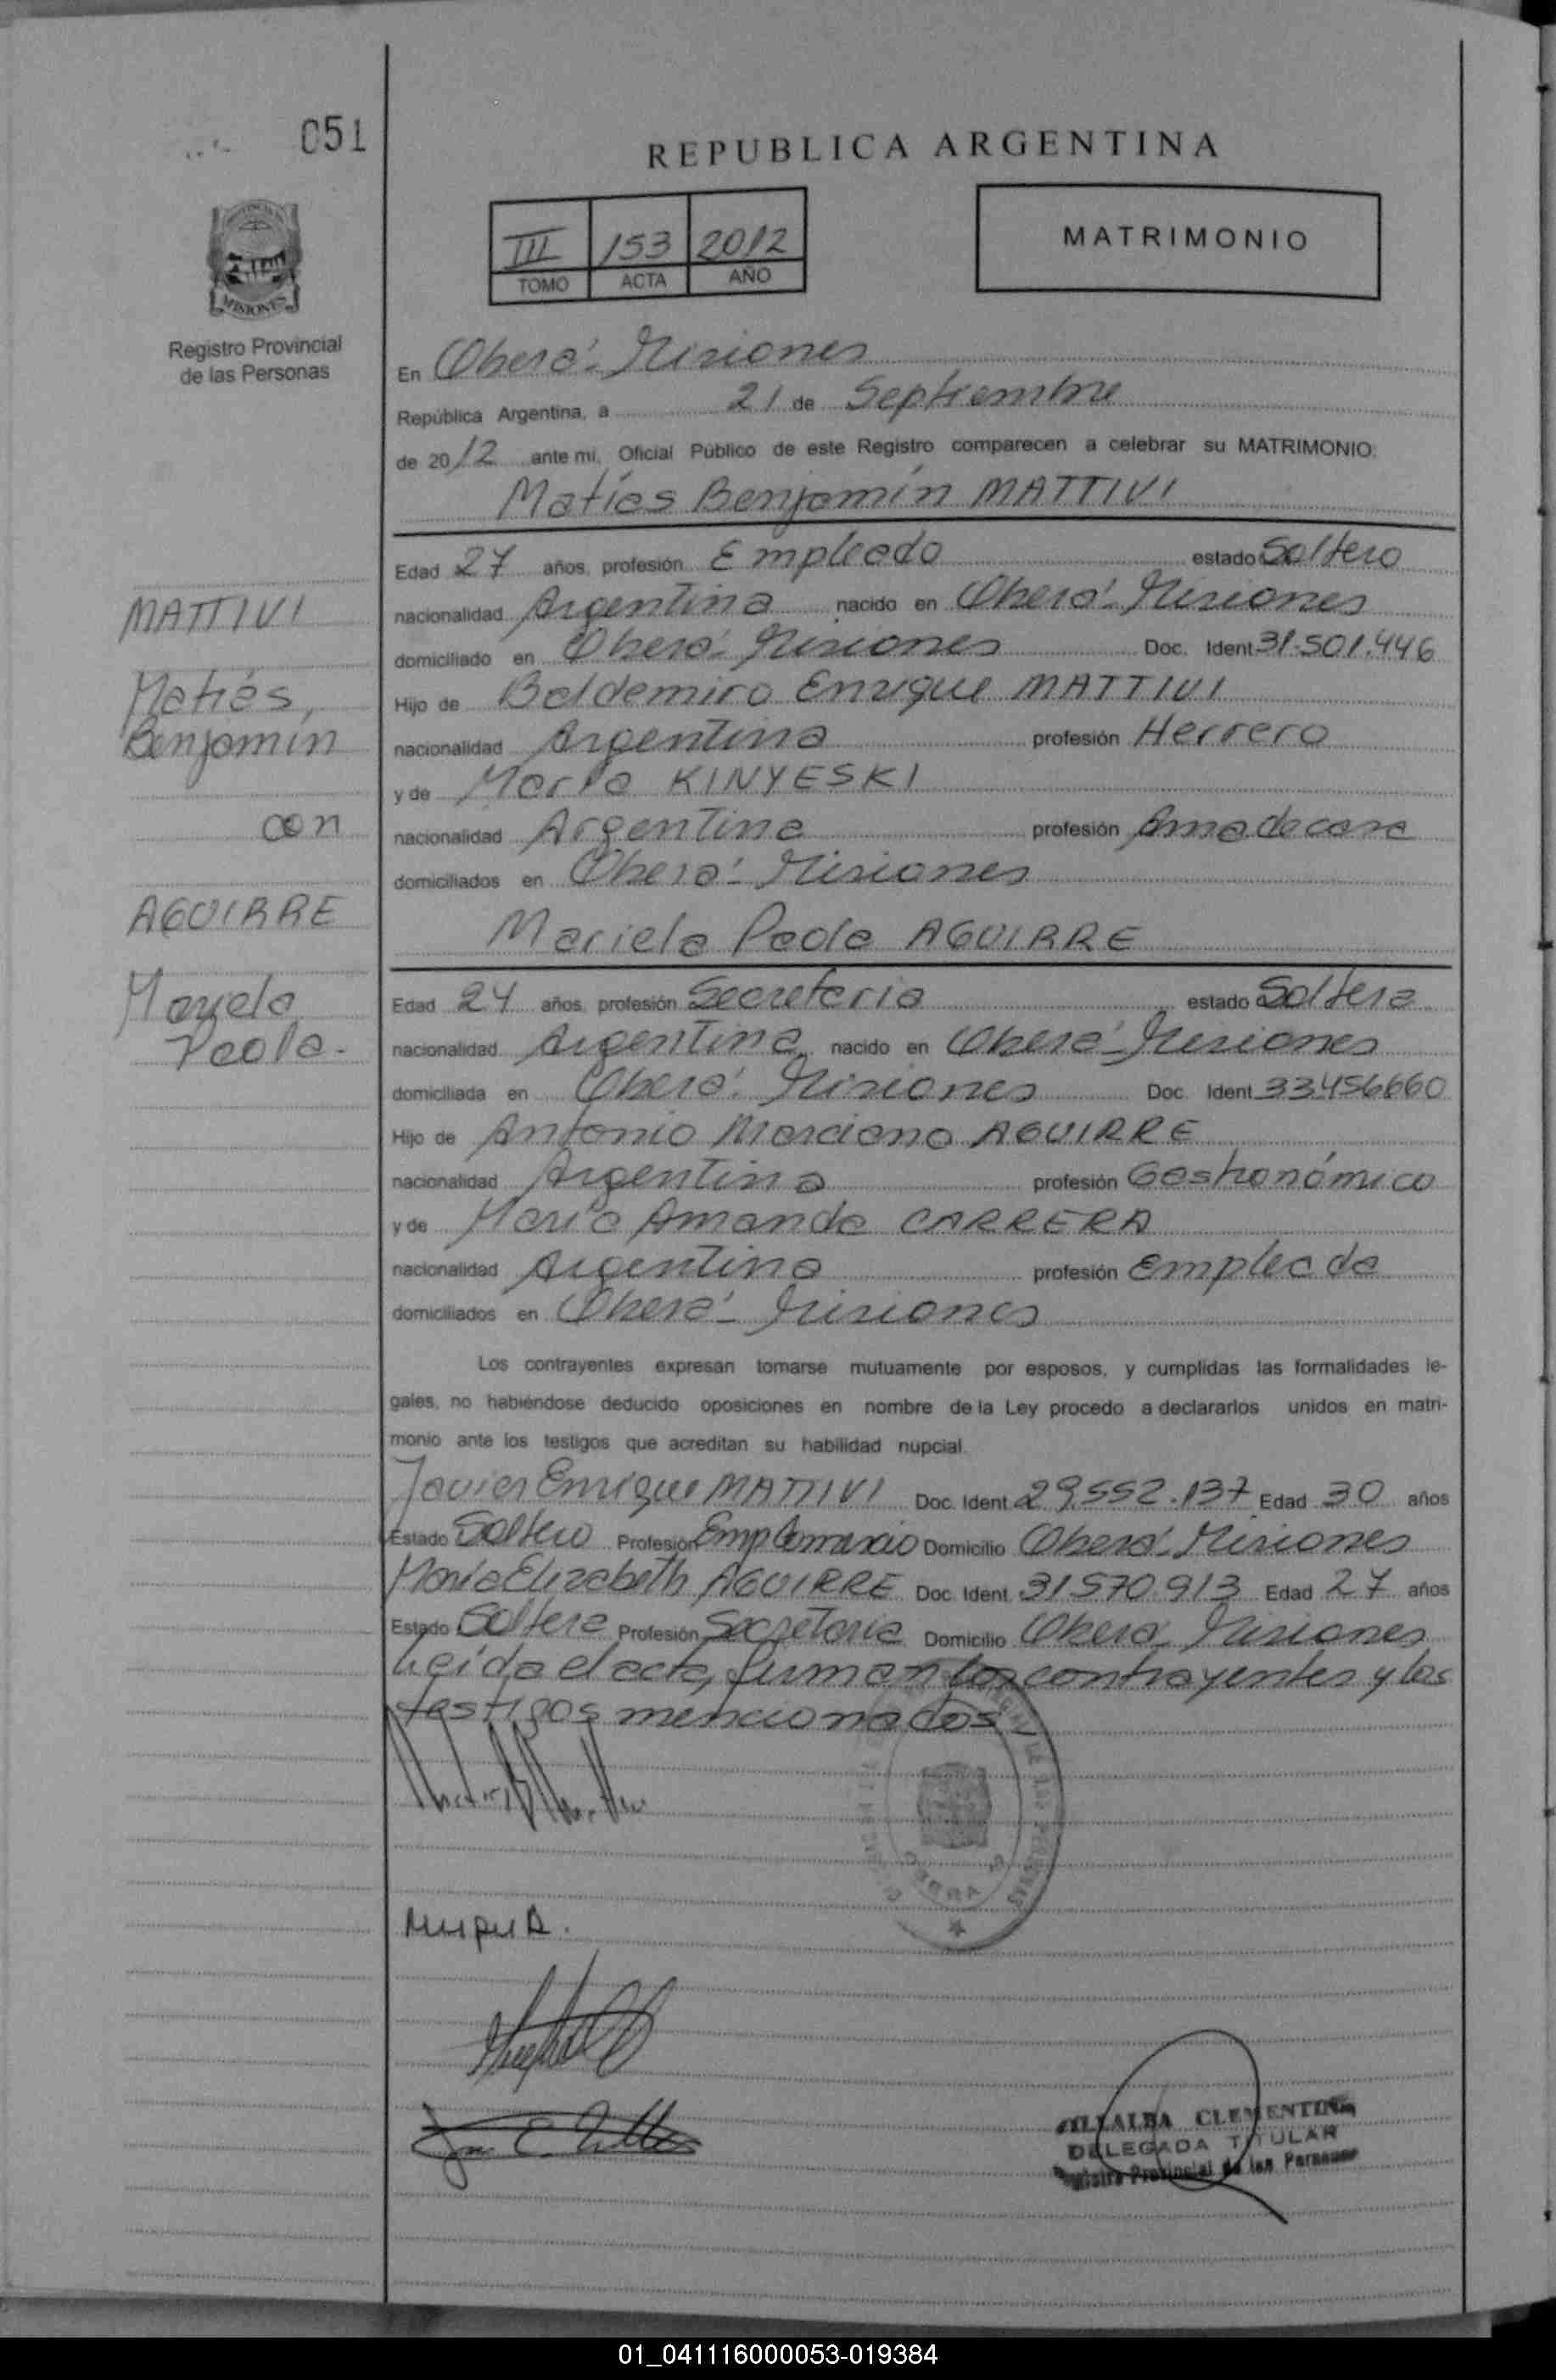 051
REPUBLICA ARGENTINA
III 153 2012
TOMO ACTA AÑO
MATRIMONIO
MISIONES
Registro Provincial
de las Personas
En Oberá - Misiones
República Argentina, a 21 de Septiembre
de 2012 ante mi, Oficial Público de este Registro comparecen a celebrar su MATRIMONIO:
Matías Benjamín MATTIVI
Edad 27 años, profesión Empleado estado Soltero
nacionalidad Argentina nacido en Oberá - Misiones
domiciliado en Oberá - Misiones Doc. Ident 31.501.446
Hijo de Baldemiro Enrique MATTIVI
nacionalidad Argentina profesión Herrero
y de María KINYESKI
nacionalidad Argentina profesión Ama de casa
domiciliados en Oberá - Misiones
MATTIVI
Matías,
Benjamín
con
AGUIRRE
Mariela
Paola -
Mariela Paola AGUIRRE
Edad 24 años, profesión Secretaria estado Soltera
nacionalidad Argentina nacido en Oberá - Misiones
domiciliada en Oberá - Misiones Doc. Ident 33.456660
Hijo de Antonio Marciano AGUIRRE
nacionalidad Argentina profesión Gastronómico
y de María Amanda CARRERA
nacionalidad Argentina profesión Empleada
domiciliados en Oberá - Misiones
Los contrayentes expresan tomarse mutuamente por esposos, y cumplidas las formalidades le-
gales, no habiéndose deducido oposiciones en nombre de la Ley procedo a declararlos unidos en matri-
monio ante los testigos que acreditan su habilidad nupcial.
Javier Enrique MATTIVI Doc. Ident 29.552.137 Edad 30 años
Estado Soltero Profesión Domicilio Oberá - Misiones
María Elizabeth AGUIRRE Doc. Ident. 31570.913 Edad 27 años
Estado Soltera Profesión Secretaria Domicilio Oberá - Misiones
Leída el acta, firman los contrayentes y los
testigos mencionados
VILLALBA CLEMENTINA
DELEGADA TITULAR
Registro Provincial de las Personas
01_041116000053-019384